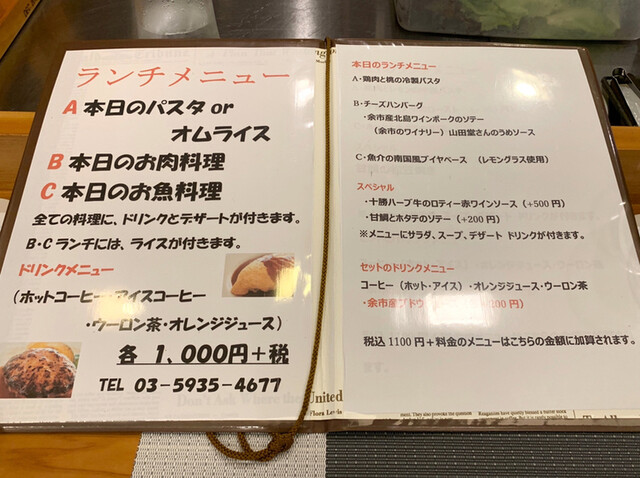 ランチメニュー
A 本日のパスタ or
オムライス
B 本日のお肉料理
C 本日のお魚料理
全ての料理に、ドリンクとデザートが付きます。
B・Cランチには、ライスが付きます。
ドリンクメニュー
(ホットコーヒー・アイスコーヒー
・ウーロン茶・オレンジジュース)
各 1,000円+税
TEL 03-5935-4677
United
Flora Lewis
本日のランチメニュー
A・鶏肉と桃の冷製パスタ
B・チーズハンバーグ
・余市産北島ワインポークのソテー
(余市のワイナリー) 山田堂さんのうめソース
C・魚介の南国風ブイヤベース (レモングラス使用)
スペシャル
・十勝ハーブ牛のロティー赤ワインソース(+500円)
・甘鯛とホタテのソテー(+200円)
※メニューにサラダ、スープ、デザート ドリンクが付きます。
セットのドリンクメニュー
コーヒー(ホット・アイス)・オレンジジュース・ウーロン茶
・余市産ブドウ 00円)
税込1100円+料金のメニューはこちらの金額に加算されます。